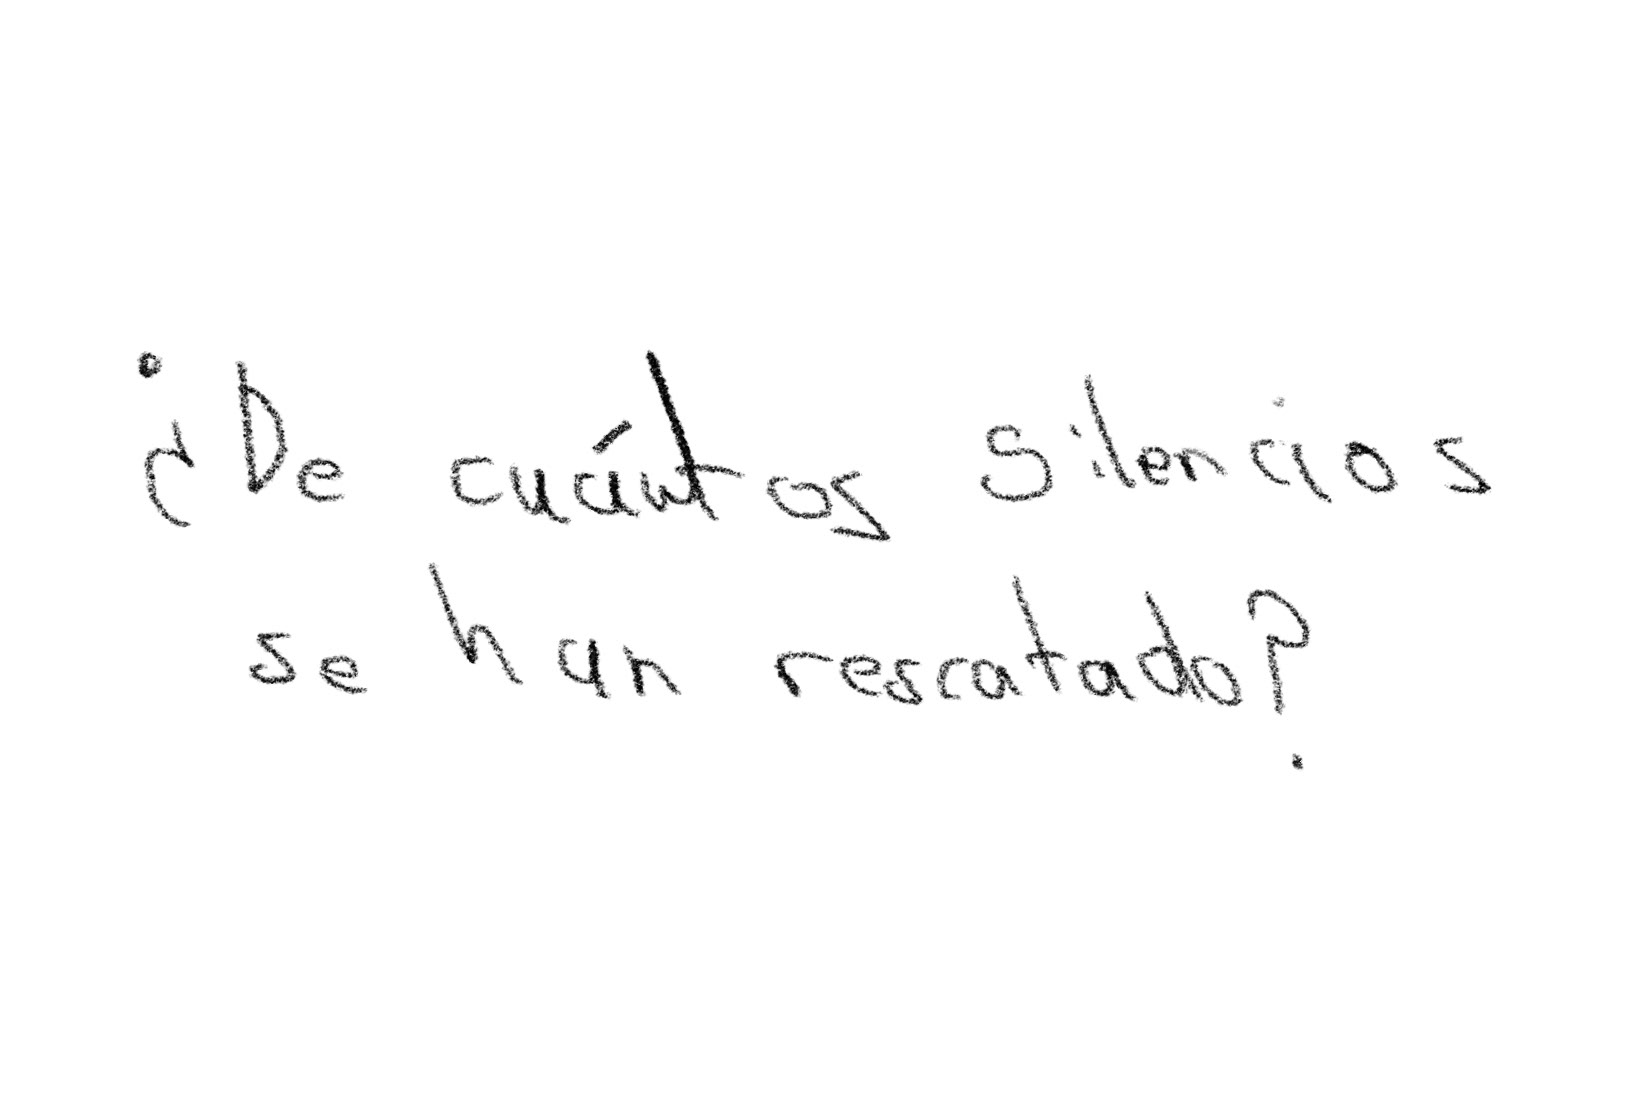 ¿De cuántos silencios
se han rescatado?